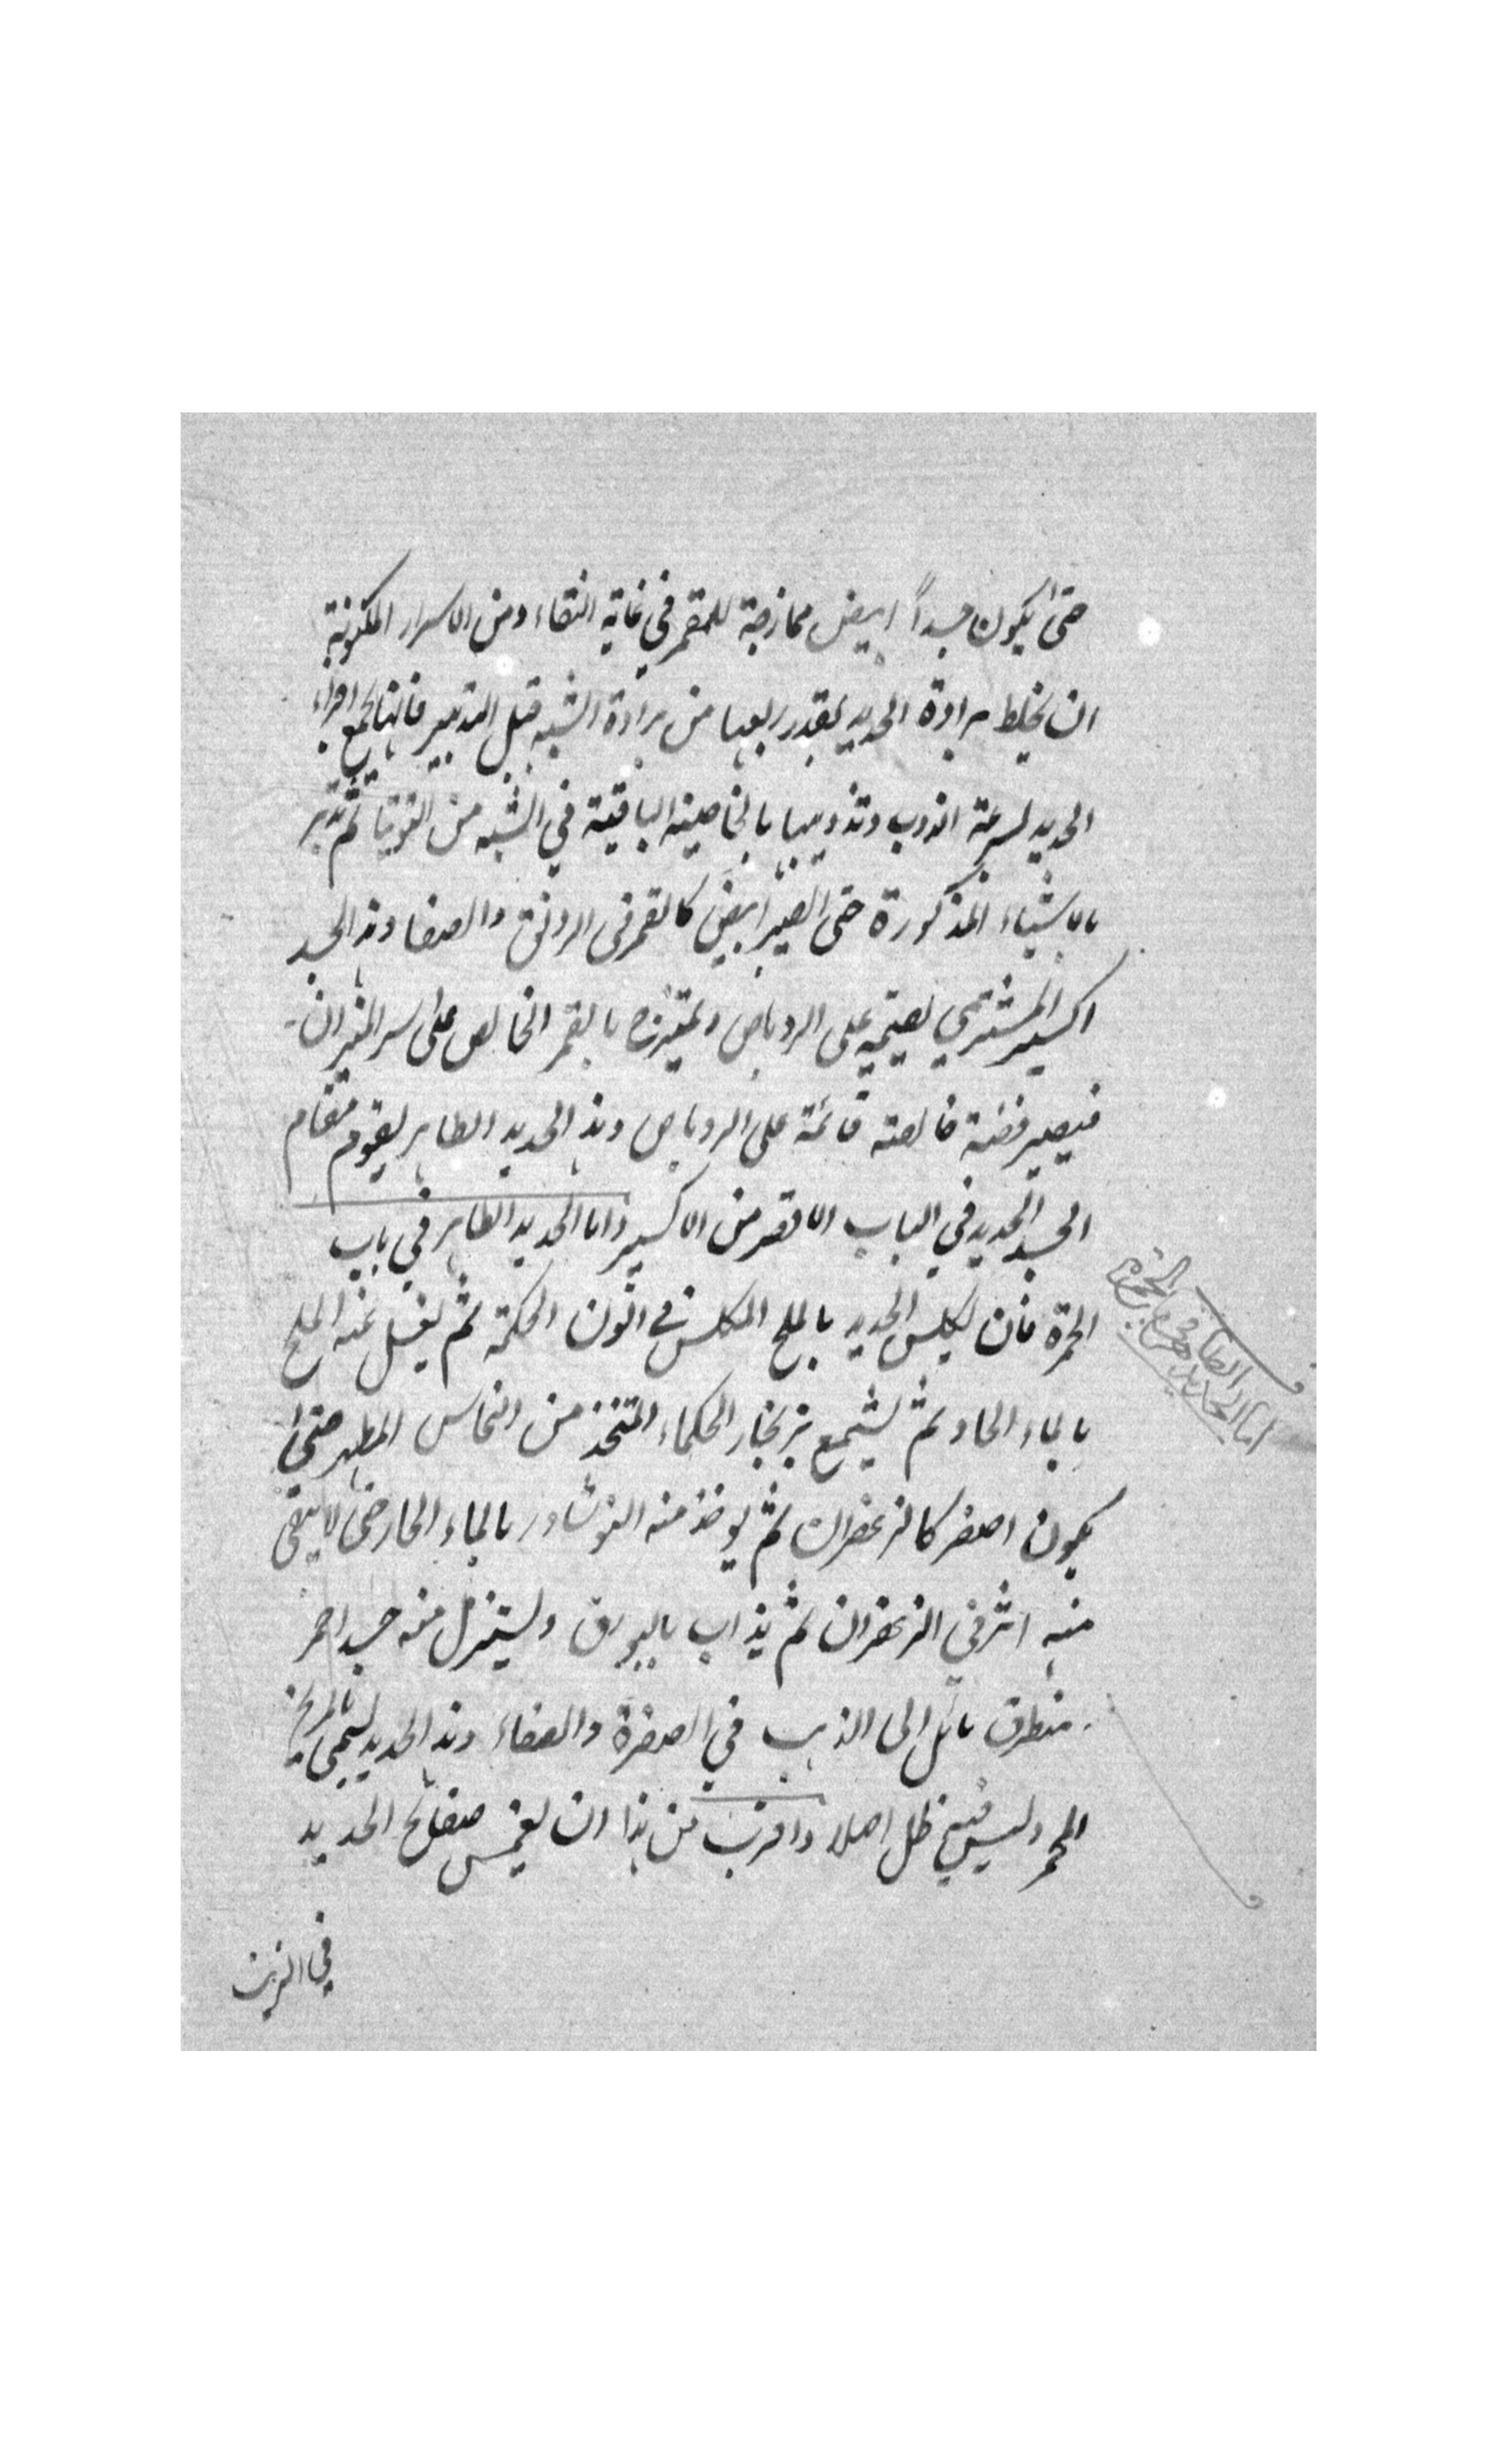 حتى يكون جسداً ابيض ممازجة للقمر في غاية النقاء ومن الاسرار المكنونة
ان يخلط برادة الحديد بقدر ربعها من برادة الشبه قبل التدبير فانها تجمع اجزاء
الحديد لسرعة الذوب وتذويبها بالخاصية الباقية في الشبه من التوتيا ثم تدبر
بالاشياء المذكورة حتى تصير ابيض كالقمر في الرونق والصفا وهذا الجسد
اكسير المشتري يقيمه على الروباص ويمتزج بالقمر الخالص على سر الميزان
فيصير فضة خالصة قائمة على الروباص وهذا الحديد الطاهر يقوم مقام
الجسد الجديد في الباب الاقصر من الاكسير واما الحديد الطاهر في باب
الحمرة فان يكلس الحديد بالملح المكلس في اتون الحكمة ثم يغسل عنه الملح
بالماء الحار ثم يشمع بزنجار الحكماء المتخذ من النحاس المطهر حتى
يكون اصفر كالزعفران ثم يوخذ منه النوشادر بالماء الحار حتى لا يبقى
منه اثر في الزعفران ثم يذاب بالبورق ويستنزل منه جسد احمر
منطرق مائل الى الذهب في الصفرة والصفاء وهذا الحديد يسمى بالمريخ
المحمر وليس فيه ظل اصلا واقرب من هذا ان يغمس صفائح الحديد
في الزيت
اما الحديد الطاهر في باب الحمرة